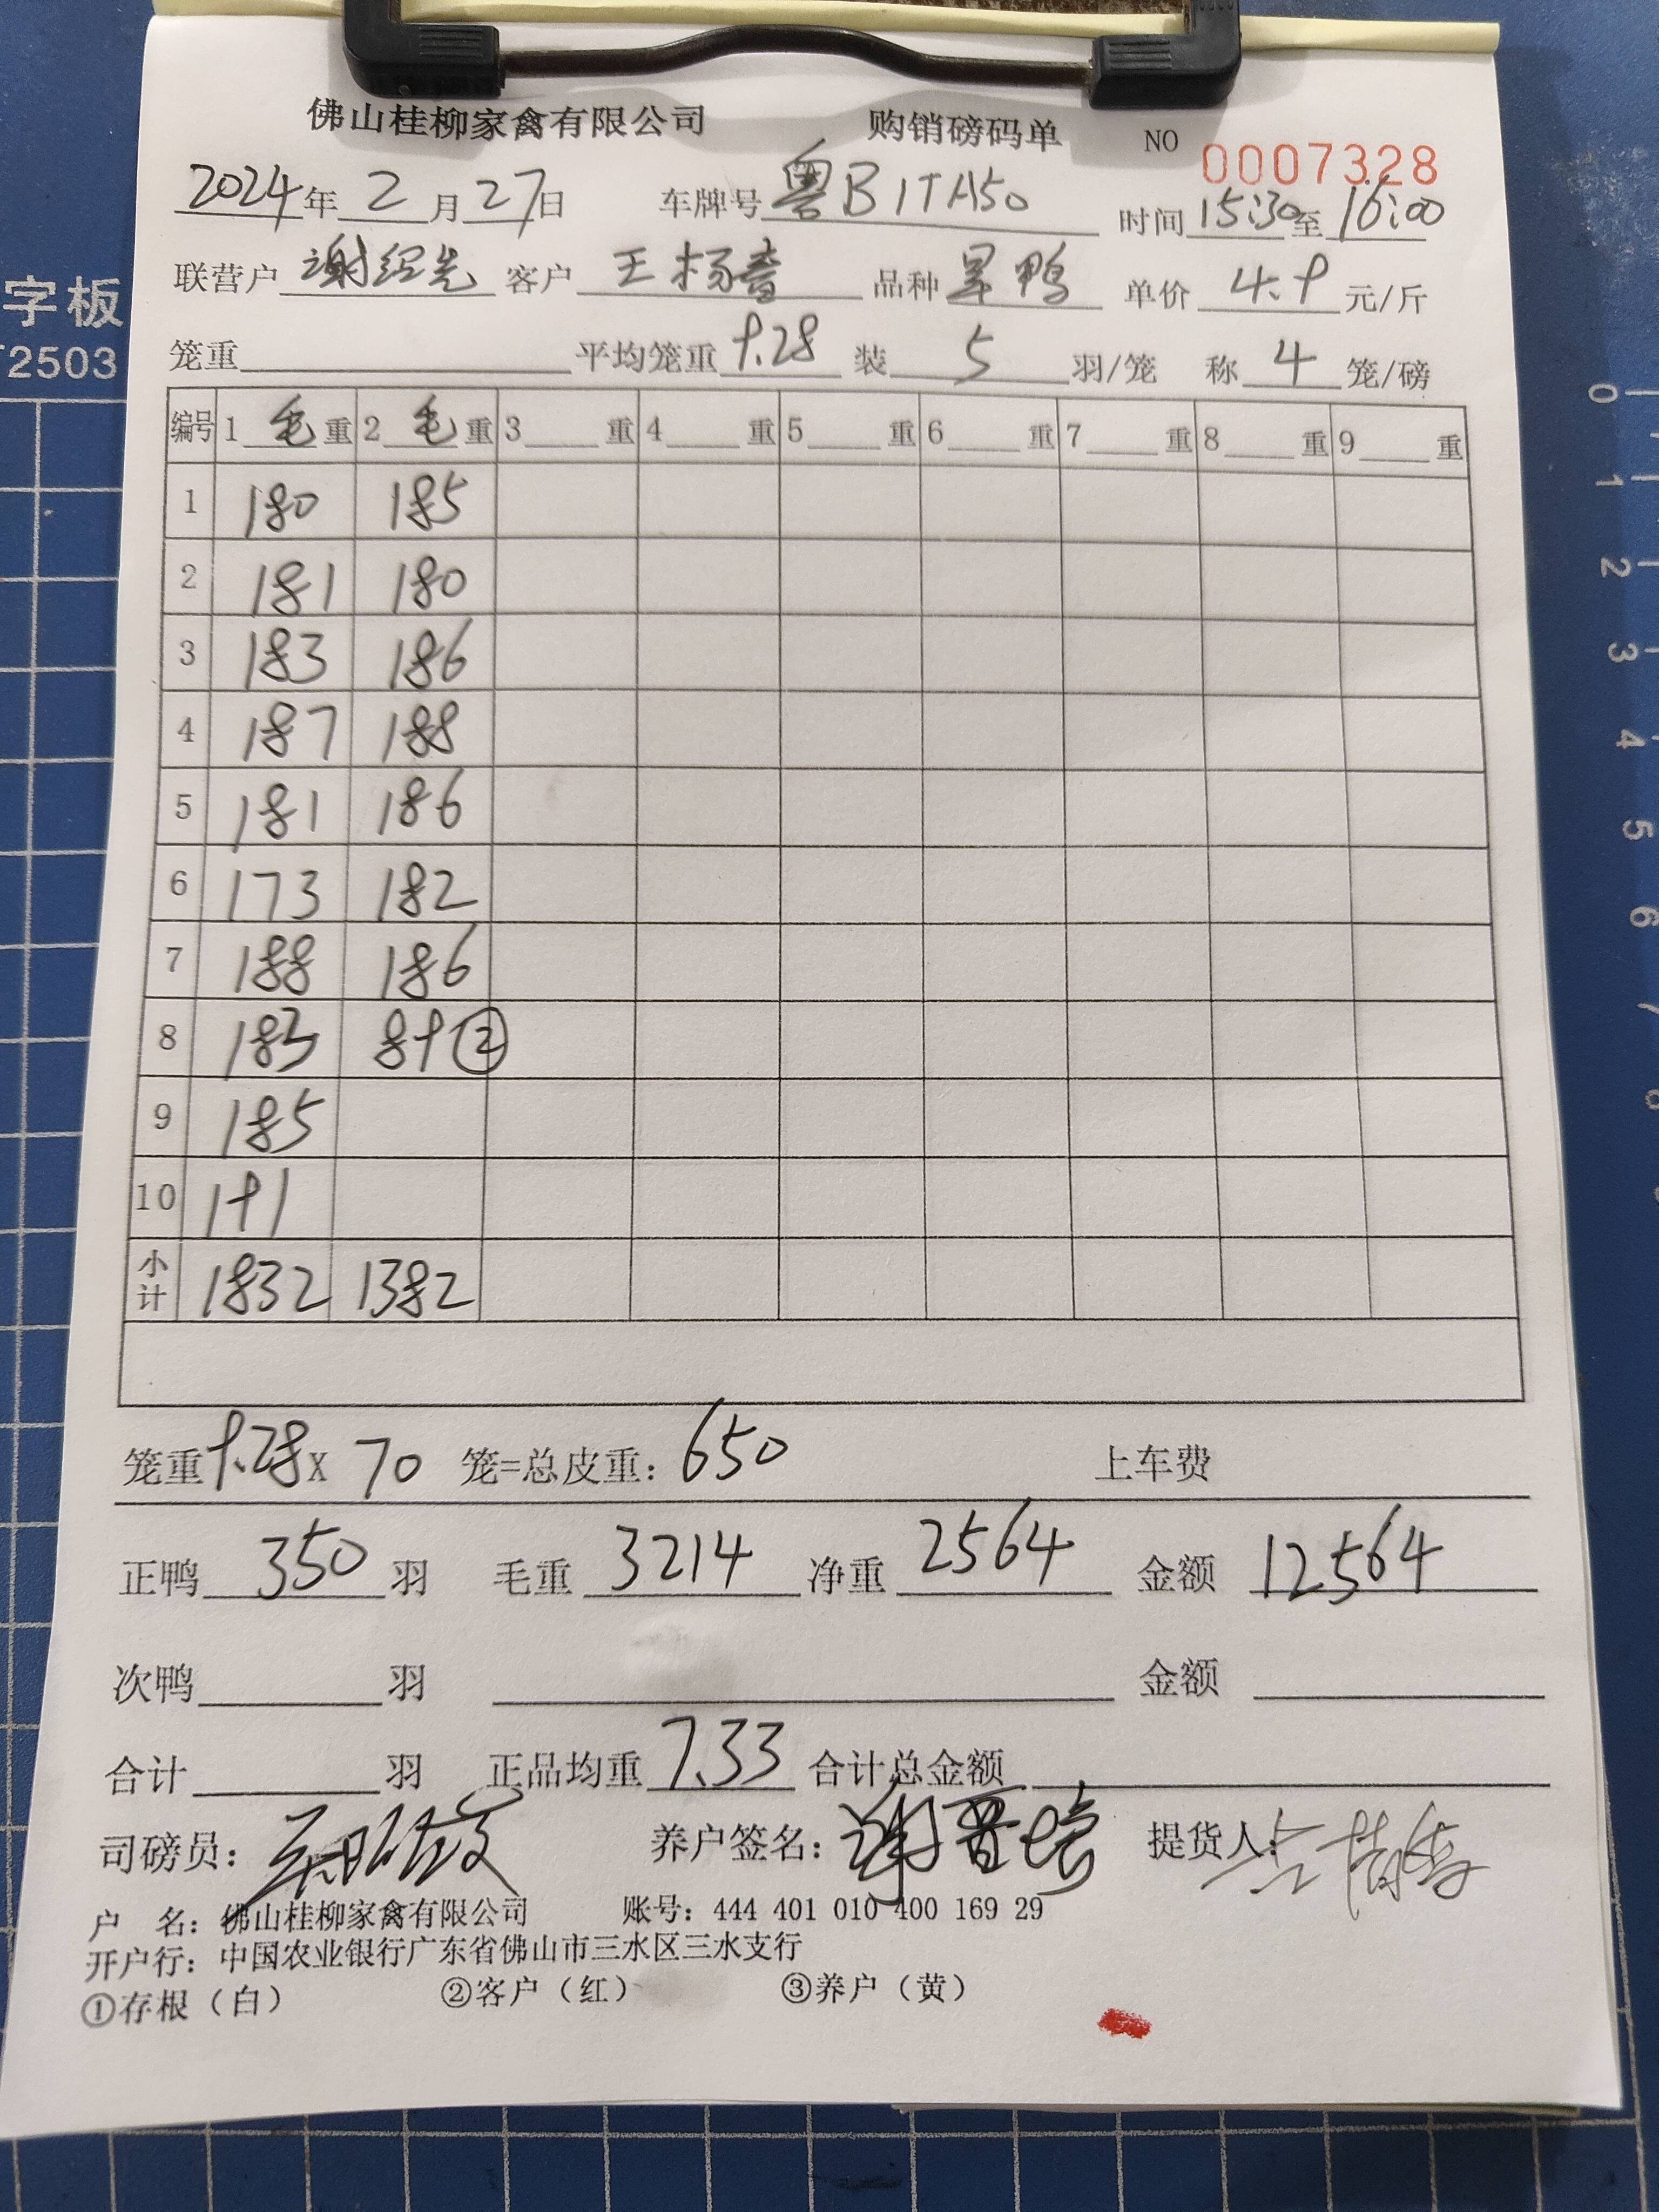 佛山桂柳家禽有限公司 购销磅码单 NO 0007328
2024年2月27日 车牌号 粤B1TA50 时间 15:30至16:00
联营户 谢绍光 客户 王杨 品种 旱鸭 单价 4.9 元/斤
笼重 平均笼重 9.28 装 5 羽/笼 称 4 笼/磅
编号 1 毛 重 2 毛 重 3 重 4 重 5 重 6 重 7 重 8 重 9 重
1 180 185
2 181 180
3 183 186
4 187 188
5 181 186
6 173 182
7 188 186
8 183 89②
9 185
10 191
小计 1832 1382
笼重 9.28 X 70 笼=总皮重: 650 上车费
正鸭 350 羽 毛重 3214 净重 2564 金额 12564
次鸭 羽 金额
合计 羽 正品均重 7.33 合计总金额
司磅员: 养户签名: 提货人:
户 名: 佛山桂柳家禽有限公司 账号: 444 401 010 400 169 29
开户行: 中国农业银行广东省佛山市三水区三水支行
①存根（白） ②客户（红） ③养户（黄）
字板
T2503
0
1
2
3
4
5
6
7